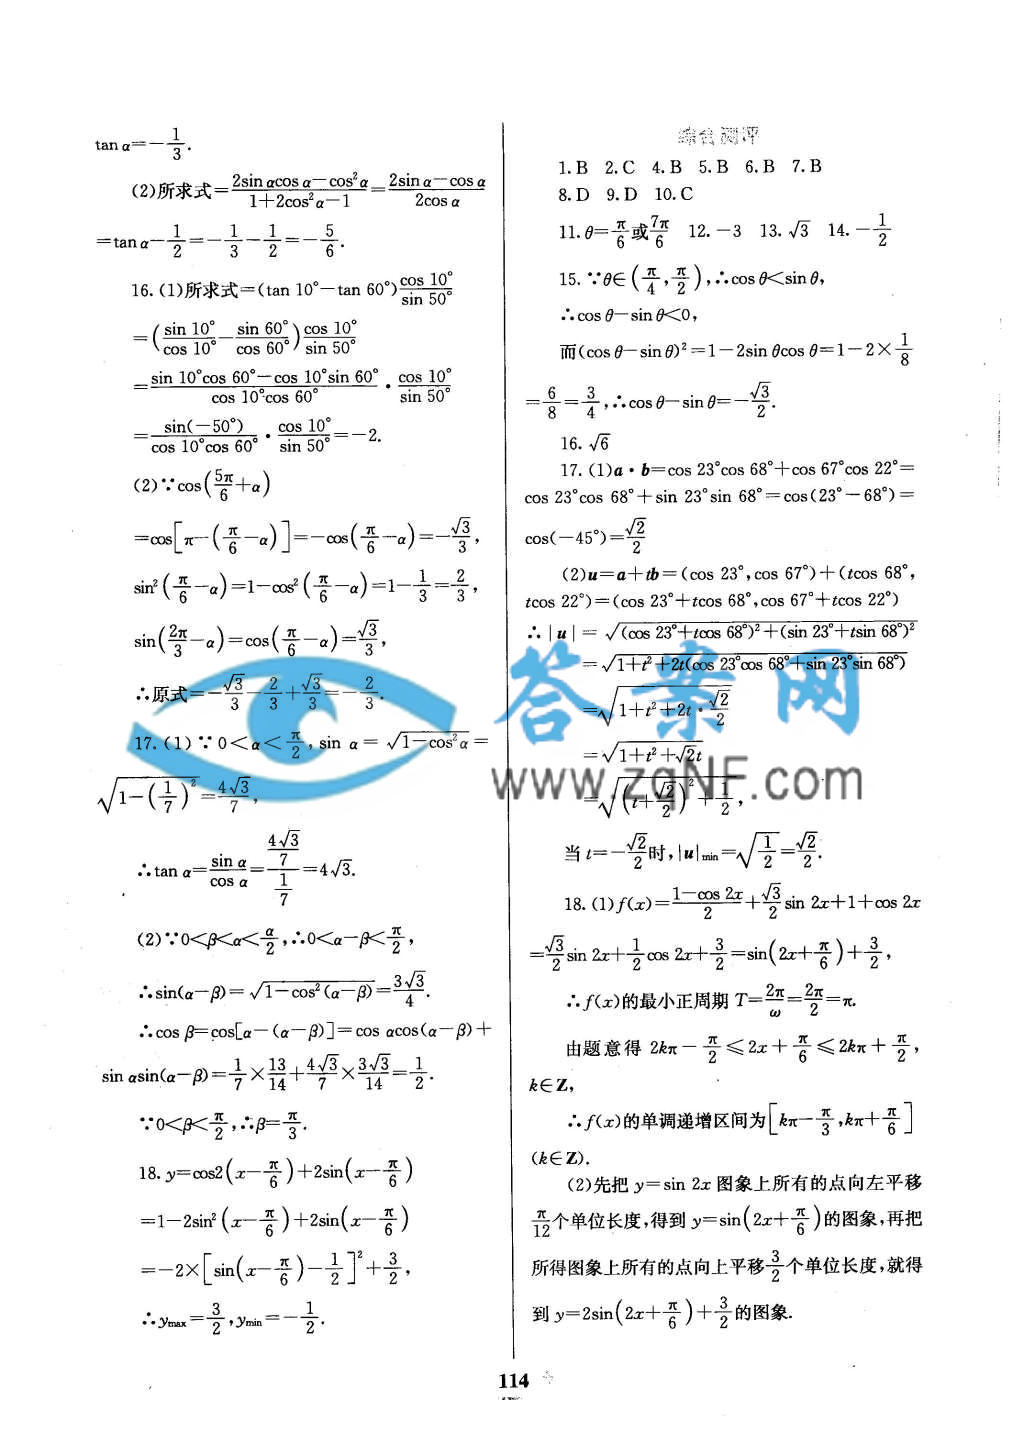 tan α=-1/3.
(2)所求式=(2sin αcos α-cos²α)/(1+2cos²α-1)=(2sin α-cos α)/(2cos α)
=tan α-1/2=-1/3-1/2=-5/6.
16.(1)所求式=(tan 10°-tan 60°)cos 10°/sin 50°
=(sin 10°/cos 10°-sin 60°/cos 60°)cos 10°/sin 50°
=(sin 10°cos 60°-cos 10°sin 60°)/(cos 10°cos 60°)·cos 10°/sin 50°
=sin(-50°)/(cos 10°cos 60°)·cos 10°/sin 50°=-2.
(2)∵cos(5π/6+α)
=cos[π-(π/6-α)]=-cos(π/6-α)=-√3/3,
sin²(π/6-α)=1-cos²(π/6-α)=1-1/3=2/3,
sin(2π/3-α)=cos(π/6-α)=√3/3,
∴原式=-√3/3-2/3+√3/3=-2/3.
17.(1)∵0<α<π/2,sin α=√(1-cos²α)=
√(1-(1/7)²)=4√3/7,
∴tan α=sin α/cos α=(4√3/7)/(1/7)=4√3.
(2)∵0<β<α<α/2,∴0<α-β<π/2,
∴sin(α-β)=√(1-cos²(α-β))=3√3/4.
∴cos β=cos[α-(α-β)]=cos αcos(α-β)+
sin αsin(α-β)=1/7×13/14+4√3/7×3√3/14=1/2.
∵0<β<π/2,∴β=π/3.
18.y=cos2(x-π/6)+2sin(x-π/6)
=1-2sin²(x-π/6)+2sin(x-π/6)
=-2×[sin(x-π/6)-1/2]²+3/2,
∴ymax=3/2,ymin=-1/2.
1.B 2.C 4.B 5.B 6.B 7.B
8.D 9.D 10.C
11.θ=π/6或7π/6 12.-3 13.√3 14.-1/2
15.∵θ∈(π/4,π/2),∴cos θ<sin θ,
∴cos θ-sin θ<0,
而(cos θ-sin θ)²=1-2sin θcos θ=1-2×1/8
=6/8=3/4,∴cos θ-sin θ=-√3/2.
16.√6
17.(1)a·b=cos 23°cos 68°+cos 67°cos 22°=
cos 23°cos 68°+sin 23°sin 68°=cos(23°-68°)=
cos(-45°)=√2/2
(2)u=a+tb=(cos 23°,cos 67°)+(tcos 68°,
tcos 22°)=(cos 23°+tcos 68°,cos 67°+tcos 22°)
∴|u|=√((cos 23°+tcos 68°)²+(sin 23°+tsin 68°)²
=√(1+t²+2t(cos 23°cos 68°+sin 23°sin 68°))
=√(1+t²+2t·√2/2)
=√(1+t²+√2t)
=√((t+√2/2)²+1/2),
当t=-√2/2时,|u|min=√(1/2)=√2/2.
18.(1)f(x)=(1-cos 2x)/2+√3/2sin 2x+1+cos 2x
=√3/2sin 2x+1/2cos 2x+3/2=sin(2x+π/6)+3/2,
∴f(x)的最小正周期T=2π/ω=2π/2=π.
由题意得 2kπ-π/2≤2x+π/6≤2kπ+π/2,
k∈Z,
∴f(x)的单调递增区间为[kπ-π/3,kπ+π/6]
(k∈Z).
(2)先把y=sin 2x图象上所有的点向左平移
π/12个单位长度,得到y=sin(2x+π/6)的图象,再把
所得图象上所有的点向上平移3/2个单位长度,就得
到y=2sin(2x+π/6)+3/2的图象.
答案网
www.zqNF.com
114